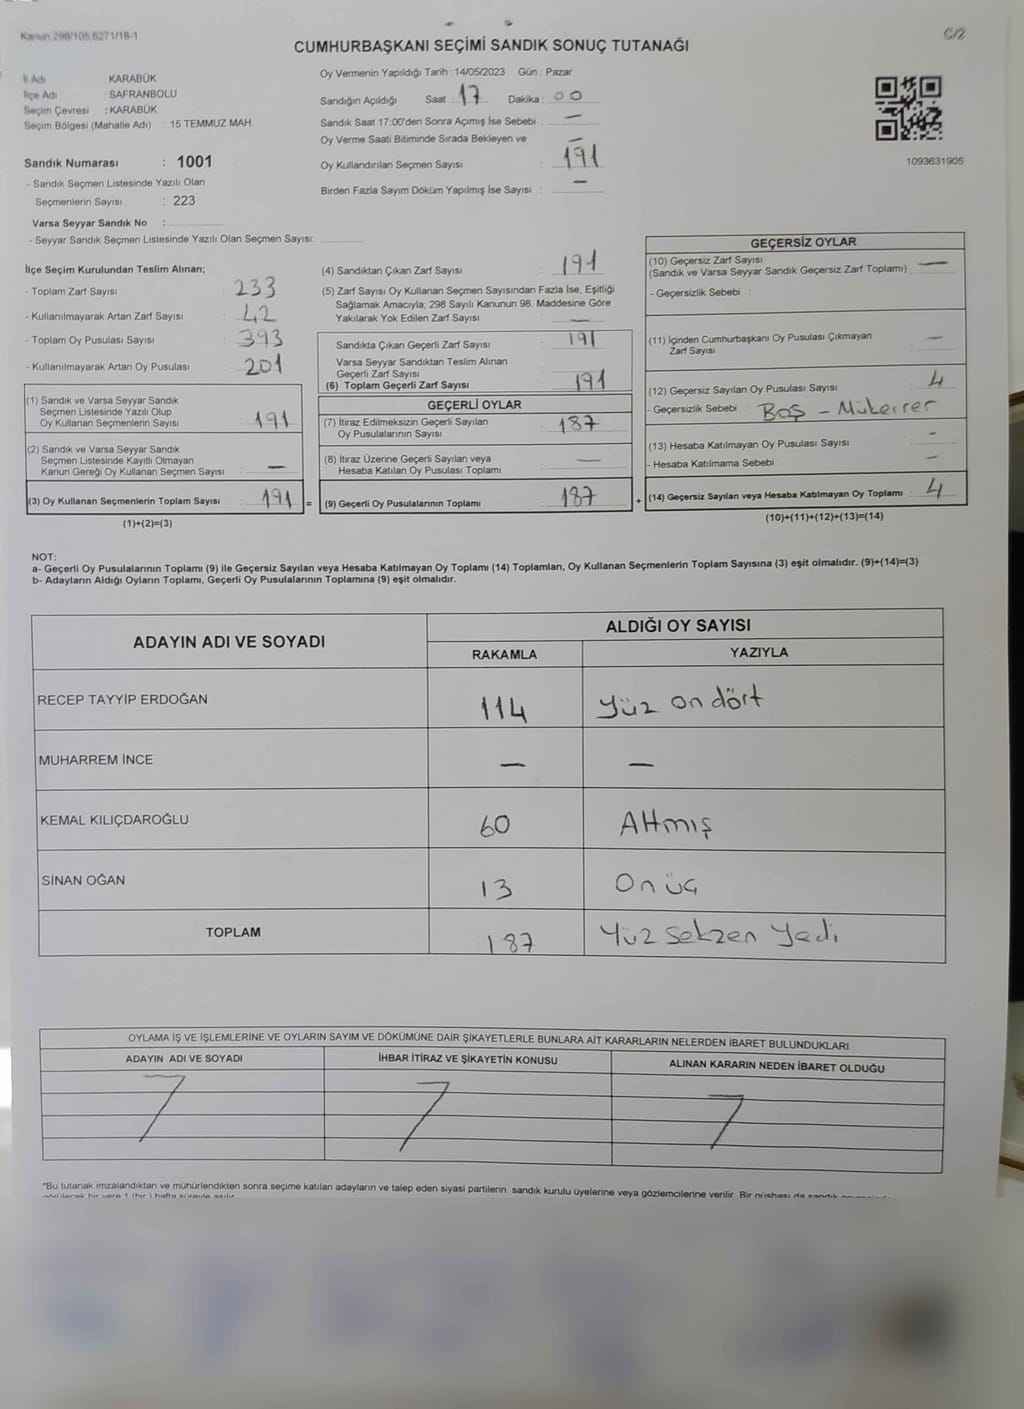 Kanun.298/105,6271/18-1
C/2
CUMHURBAŞKANI SEÇİMİ SANDIK SONUÇ TUTANAĞI
İl Adı : KARABÜK
İlçe Adı : SAFRANBOLU
Seçim Çevresi : KARABÜK
Seçim Bölgesi (Mahalle Adı) : 15 TEMMUZ MAH.
Sandık Numarası : 1001
- Sandık Seçmen Listesinde Yazılı Olan
Seçmenlerin Sayısı : 223
Varsa Seyyar Sandık No :
- Seyyar Sandık Seçmen Listesinde Yazılı Olan Seçmen Sayısı:
Oy Vermenin Yapıldığı Tarih : 14/05/2023 Gün : Pazar
Sandığın Açıldığı Saat : 17 Dakika : 00
Sandık Saat 17:00'den Sonra Açımış İse Sebebi : —
Oy Verme Saati Bitiminde Sırada Bekleyen ve —
Oy Kullandırılan Seçmen Sayısı : 191
Birden Fazla Sayım Döküm Yapılmış İse Sayısı : —
1093631905
İlçe Seçim Kurulundan Teslim Alınan;
- Toplam Zarf Sayısı : 233
- Kullanılmayarak Artan Zarf Sayısı : 42
- Toplam Oy Pusulası Sayısı : 393
- Kullanılmayarak Artan Oy Pusulası : 201
(1) Sandık ve Varsa Seyyar Sandık
Seçmen Listesinde Yazılı Olup
Oy Kullanan Seçmenlerin Sayısı : 191
(2) Sandık ve Varsa Seyyar Sandık
Seçmen Listesinde Kayıtlı Olmayan
Kanun Gereği Oy Kullanan Seçmen Sayısı : —
(3) Oy Kullanan Seçmenlerin Toplam Sayısı : 191 =
(1)+(2)=(3)
(4) Sandıktan Çıkan Zarf Sayısı : 191
(5) Zarf Sayısı Oy Kullanan Seçmen Sayısından Fazla İse, Eşitliği
Sağlamak Amacıyla; 298 Sayılı Kanunun 98. Maddesine Göre
Yakılarak Yok Edilen Zarf Sayısı : —
Sandıkta Çıkan Geçerli Zarf Sayısı : 191
Varsa Seyyar Sandıktan Teslim Alınan
Geçerli Zarf Sayısı :
(6) Toplam Geçerli Zarf Sayısı : 191
GEÇERLİ OYLAR
(7) İtiraz Edilmeksizin Geçerli Sayılan
Oy Pusulalarının Sayısı : 187
(8) İtiraz Üzerine Geçerli Sayılan veya
Hesaba Katılan Oy Pusulası Toplamı : —
(9) Geçerli Oy Pusulalarının Toplamı : 187 +
GEÇERSİZ OYLAR
(10) Geçersiz Zarf Sayısı
(Sandık ve Varsa Seyyar Sandık Geçersiz Zarf Toplamı) : —
- Geçersizlik Sebebi :
(11) İçinden Cumhurbaşkanı Oy Pusulası Çıkmayan
Zarf Sayısı : —
(12) Geçersiz Sayılan Oy Pusulası Sayısı : 4
- Geçersizlik Sebebi : Boş - Mükerrer
(13) Hesaba Katılmayan Oy Pusulası Sayısı : —
- Hesaba Katılmama Sebebi : —
(14) Geçersiz Sayılan veya Hesaba Katılmayan Oy Toplamı : 4
(10)+(11)+(12)+(13)=(14)
NOT:
a- Geçerli Oy Pusulalarının Toplamı (9) ile Geçersiz Sayılan veya Hesaba Katılmayan Oy Toplamı (14) Toplamları, Oy Kullanan Seçmenlerin Toplam Sayısına (3) eşit olmalıdır. (9)+(14)=(3)
b- Adayların Aldığı Oyların Toplamı, Geçerli Oy Pusulalarının Toplamına (9) eşit olmalıdır.
ADAYIN ADI VE SOYADI
ALDIĞI OY SAYISI
RAKAMLA YAZIYLA
RECEP TAYYİP ERDOĞAN 114 Yüz on dört
MUHARREM İNCE — —
KEMAL KILIÇDAROĞLU 60 Altmış
SİNAN OĞAN 13 On üç
TOPLAM 187 Yüz Seksen Yedi
OYLAMA İŞ VE İŞLEMLERİNE VE OYLARIN SAYIM VE DÖKÜMÜNE DAİR ŞİKAYETLERLE BUNLARA AİT KARARLARIN NELERDEN İBARET BULUNDUKLARI
ADAYIN ADI VE SOYADI İHBAR İTİRAZ VE ŞİKAYETİN KONUSU ALINAN KARARIN NEDEN İBARET OLDUĞU
"Bu tutanak imzalandıktan ve mühürlendikten sonra seçime katılan adayların ve talep eden siyasi partilerin sandık kurulu üyelerine veya gözlemcilerine verilir. Bir nüshası da sandık